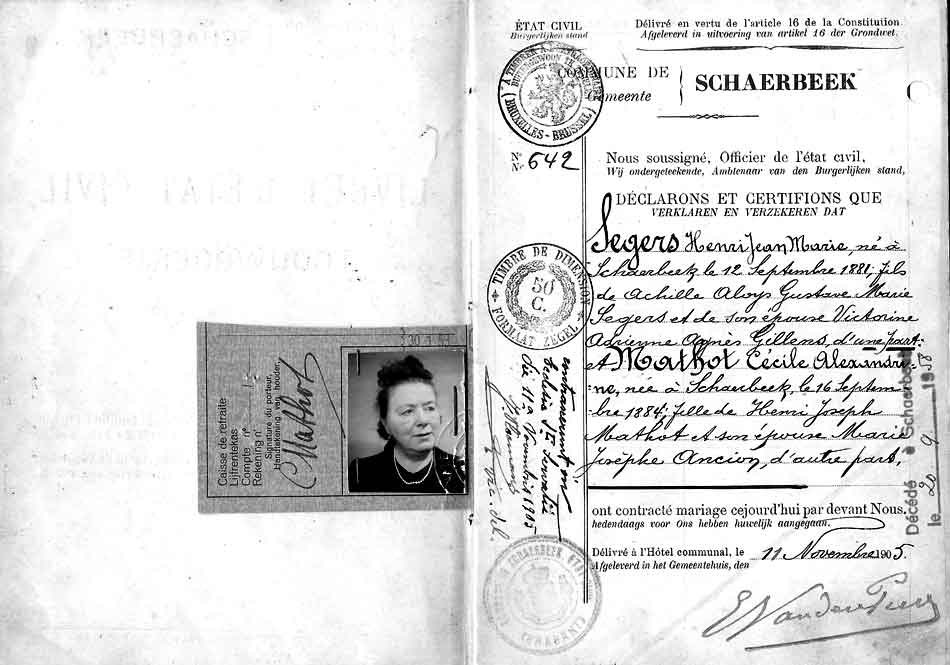 ÉTAT CIVIL
Burgerlijken stand
Délivré en vertu de l'article 16 de la Constitution.
Afgeleverd in uitvoering van artikel 16 der Grondwet.
COMMUNE DE
Gemeente
SCHAERBEEK
BRUXELLES - BRUSSEL
Nº 642
Nr
Nous soussigné, Officier de l'état civil,
Wij ondergeteekende, Ambtenaar van den Burgerlijken stand,
DÉCLARONS ET CERTIFIONS QUE
VERKLAREN EN VERZEKEREN DAT
Segers Henri Jean Marie, né à
Schaerbeek, le 12 Septembre 1881; fils
de Achille Aloys Gustave Marie
Segers et de son épouse Victorine
Adrienne Agnès Gillens, d'une part:
et Mathot Cécile Alexandri-
ne, née à Schaerbeek, le 16 Septem-
bre 1884; fille de Henri Joseph
Mathot et son épouse Marie
Josèphe Ancion, d'autre part,
ont contracté mariage cejourd'hui par devant Nous.
hedendaags voor Ons hebben huwelijk aangegaan.
Délivré à l'Hôtel communal, le 11 Novembre 1905.
Afgeleverd in het Gemeentehuis, den
TIMBRE DE DIMENSION
50
C.
FORMAAT ZEGEL
Décédé à Schaerbeek
le 20 9 1958
Caisse de retraite
Lijfrentekas
Compte nº
Rekening nº
Signature du porteur,
Handtekening van houder,
Mathot